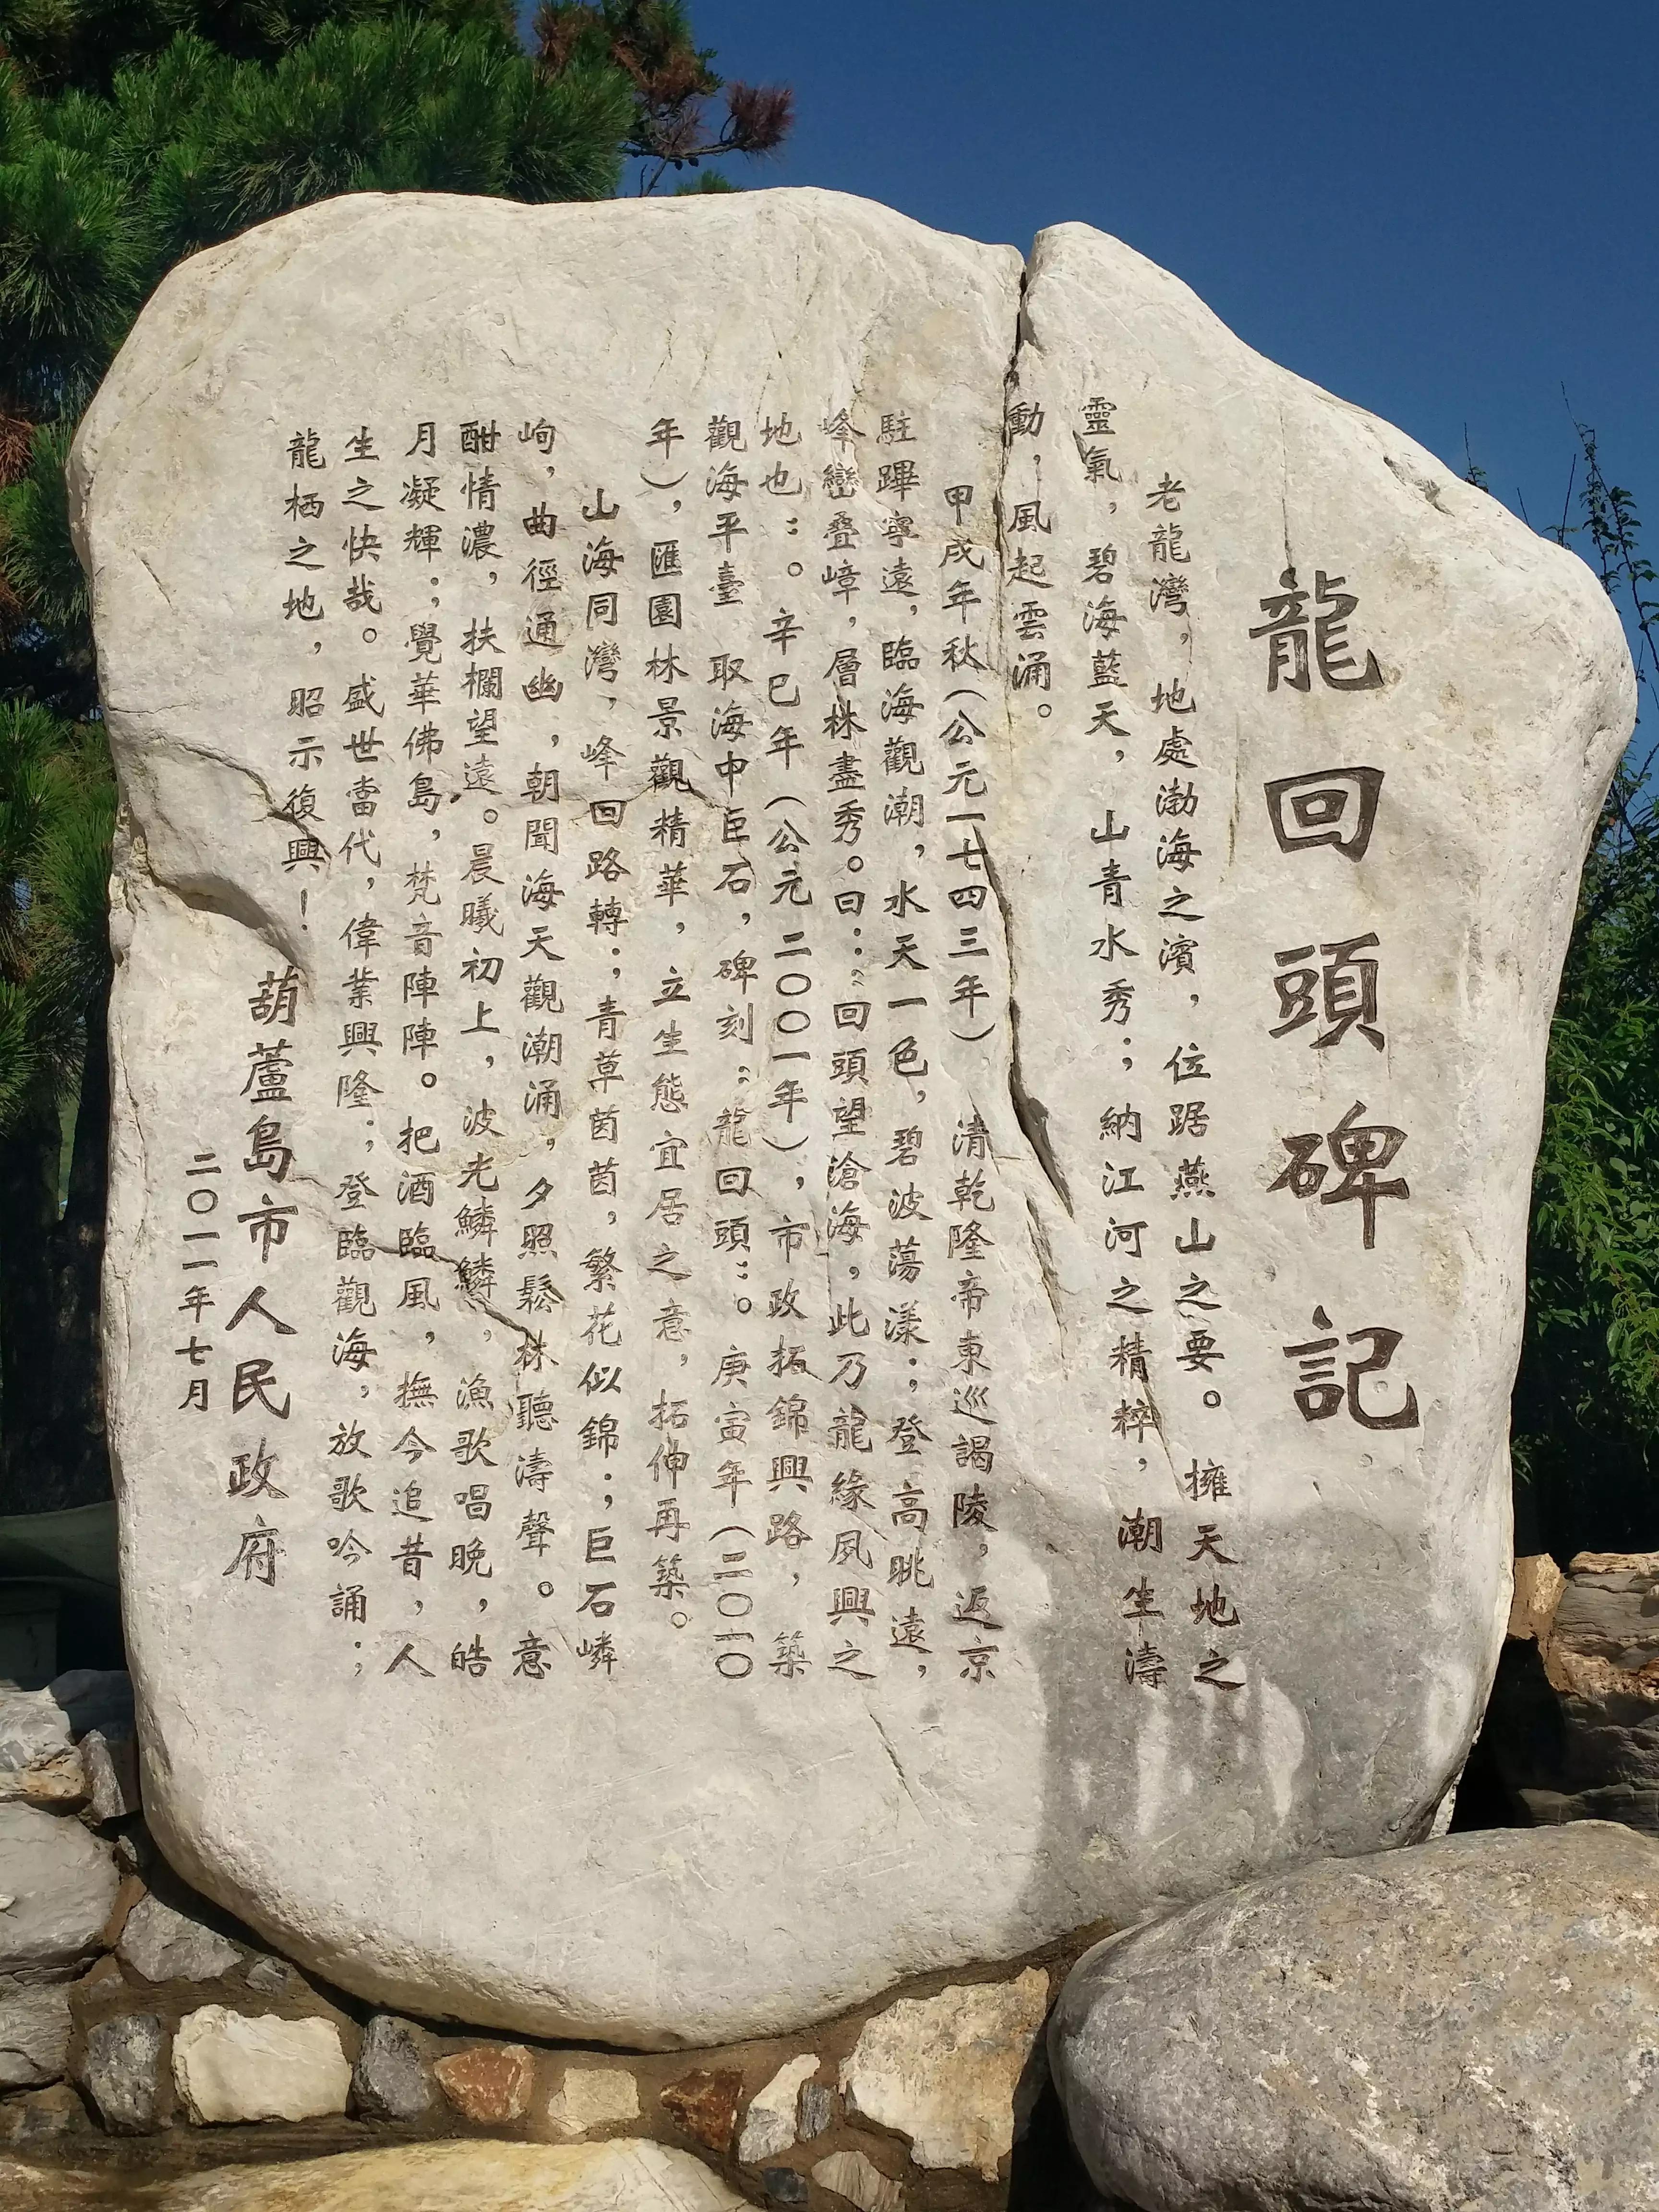 龍回頭碑記
老龍灣，地處渤海之濱，位踞燕山之要。擁天地之
靈氣，碧海藍天，山青水秀；納江河之精粹，潮生濤
動，風起雲涌。
甲戌年秋（公元一七四三年），清乾隆帝東巡謁陵，返京
駐蹕寧遠，臨海觀潮，水天一色，碧波蕩漾；登高眺遠，
峰巒叠嶂，層林盡秀。曰：“回頭望滄海，此乃龍緣夙興之
地也”。辛巳年（公元二〇〇一年），市政拓錦興路，築
觀海平臺，取海中巨石，碑刻“龍回頭”。庚寅年（二〇一〇
年），匯園林景觀精華，立生態宜居之意，拓伸再築。
山海同灣，峰回路轉；青草茵茵，繁花似錦；巨石嶙
峋，曲徑通幽，朝聞海天觀潮涌，夕照鬆林聽濤聲。意
酣情濃，扶欄望遠。晨曦初上，波光鱗鱗，漁歌唱晚，皓
月凝輝；覺華佛島，梵音陣陣。把酒臨風，撫今追昔，人
生之快哉。盛世當代，偉業興隆；登臨觀海，放歌吟誦；
龍栖之地，昭示復興！
葫蘆島市人民政府
二〇一一年七月